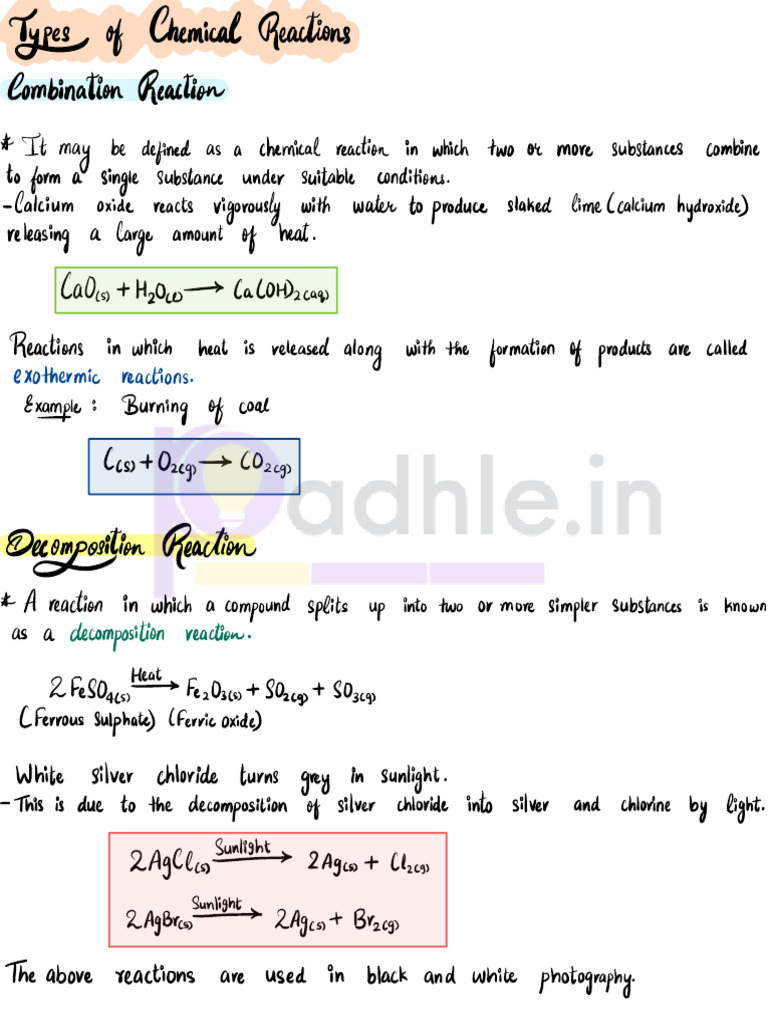 Types of Chemical Reactions
Combination Reaction
* It may be defined as a chemical reaction in which two or more substances combine
to form a single substance under suitable conditions.
-Calcium oxide reacts vigorously with water to produce slaked lime (calcium hydroxide)
releasing a large amount of heat.
CaO(s) + H2O(l) ⟶ Ca(OH)2(aq)
Reactions in which heat is released along with the formation of products are called
exothermic reactions.
Example : Burning of coal
C(s) + O2(g) ⟶ CO2(g)
padhle.in
Decomposition Reaction
* A reaction in which a compound splits up into two or more simpler substances is known
as a decomposition reaction.
2 FeSO4(s) Heat⟶ Fe2O3(s) + SO2(g) + SO3(g)
(Ferrous Sulphate) (Ferric oxide)
White silver chloride turns grey in sunlight.
- This is due to the decomposition of silver chloride into silver and chlorine by light.
2AgCl(s) Sunlight⟶ 2Ag(s) + Cl2(g)
2AgBr(s) Sunlight⟶ 2Ag(s) + Br2(g)
The above reactions are used in black and white photography.